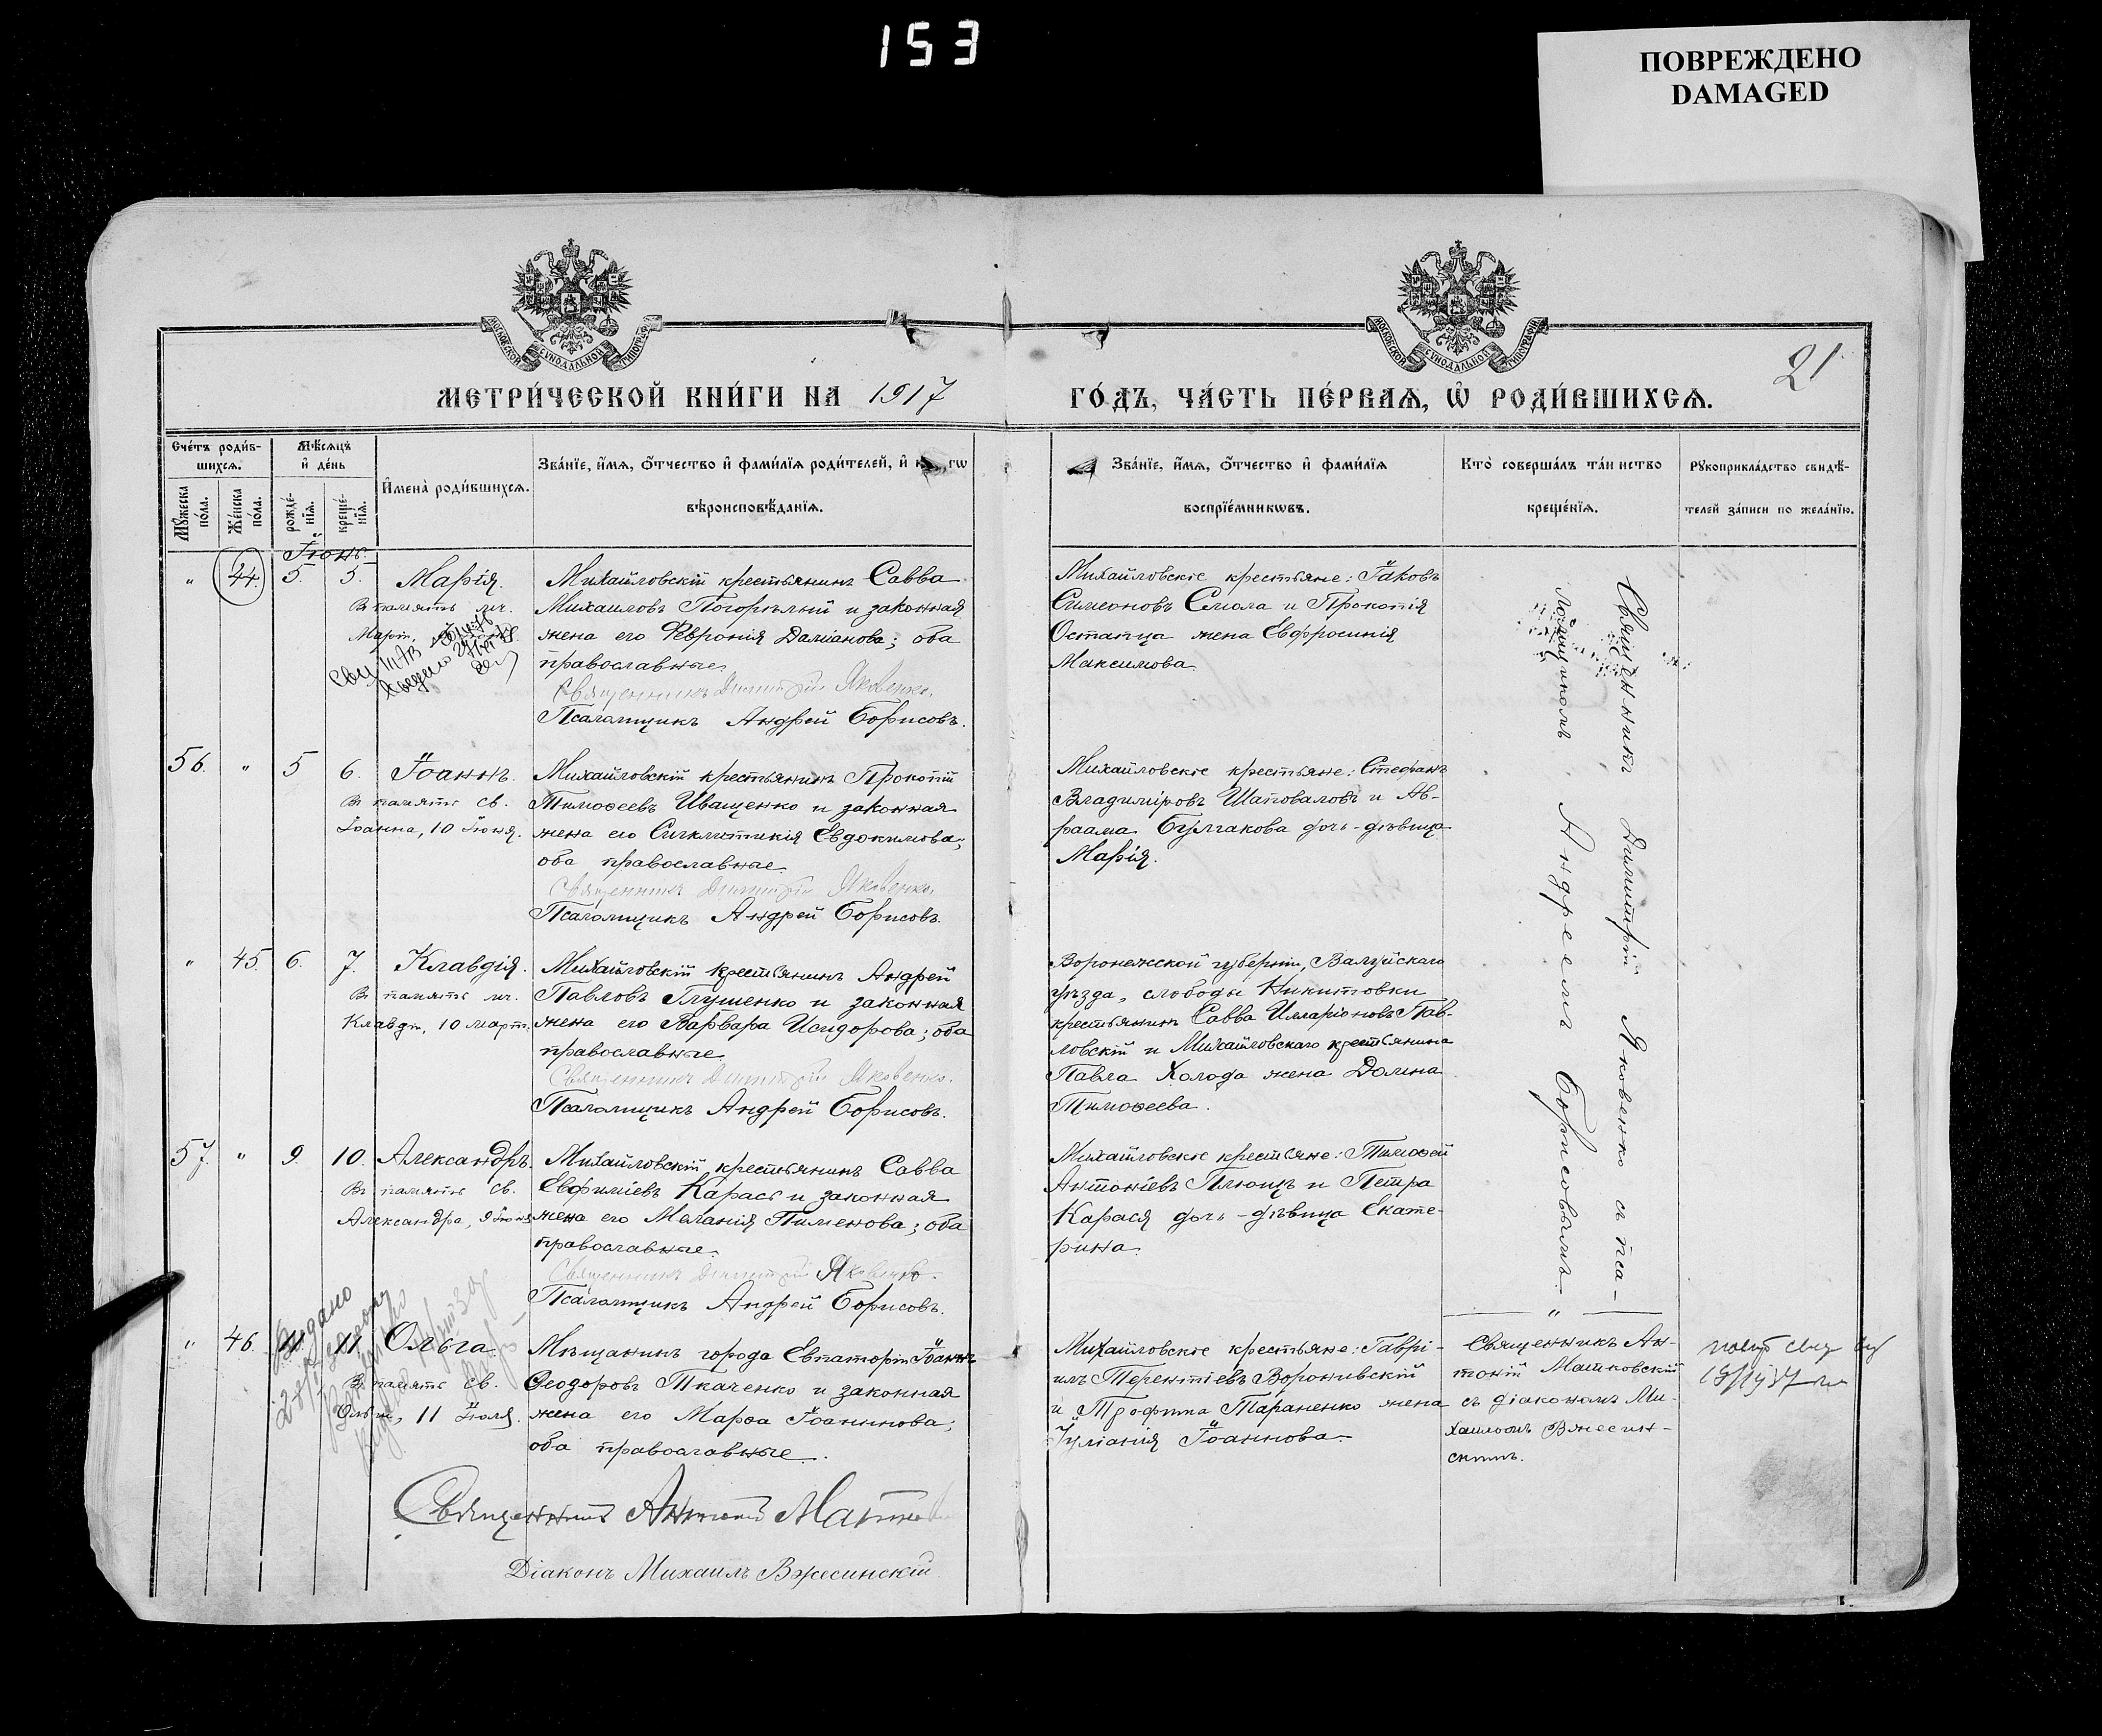 153
ПОВРЕЖДЕНО
DAMAGED
МОСКОВСКОЙ СѴНОДАЛЬНОЙ ТИПОГРАФІИ
МОСКОВСКОЙ СѴНОДАЛЬНОЙ ТИПОГРАФІИ
21
МЕТРИ́ЧЕСКОЙ КНИ́ГИ НА 1917
ГО́ДЪ, ЧА́СТЬ ПЕ́РВАѦ, Ѡ҆ РОДИ́ВШИХСѦ.
Сче́тъ роди́в-
шихся.
Мѣ́сяцъ
и҆ де́нь
Мꙋ́жеска
по́ла.
Же́нска
по́ла.
рожде́-
нїѧ.
креще́-
нїѧ.
И҆мена̀ роди́вшихсѧ.
Зва́нїе, и҆́мѧ, ѻ҆́тчество и҆ фами́лїѧ роди́телей, и҆ к гѡ
вѣроисповѣ́данїѧ.
Зва́нїе, и҆́мѧ, ѻ҆́тчество и҆ фами́лїѧ
воспрїе́мникѡвъ.
Кто̀ соверша́лъ та́инство
креще́нїѧ.
Рꙋкоприкла́дство свидѣ́-
телей за́писи по жела́нїю.
Іюнь.
" 44. 5. 5. Марія.
Въ память мч.
Маріи,
Михайловскій крестьянинъ Савва
Михаиловъ Погорѣлый и законная
жена его Феврония Даміанова; оба
православные.
Священникъ Димитрій Яковенко.
Псаломщикъ Андрей Борисовъ.
Михайловскіе крестьяне: Іаковъ
Симеоновъ Смола и Прокопія
Остапца жена Евфросинія
Максимова.
Священникъ Димитрій Яковенко съ пса-
ломщикомъ Андреемъ Борисовымъ.
56. " 5 6. Іоаннъ.
Въ память св.
Іоанна, 10 Іюня.
Михайловскій крестьянинъ Прокопій
Тимоѳеевъ Иващенко и законная
жена его Сигклитикія Евдокимова;
оба православные.
Священникъ Димитрій Яковенко.
Псаломщикъ Андрей Борисовъ.
Михайловскіе крестьяне: Стефанъ
Владиміровъ Шаповаловъ и Ав-
раама Булгакова дочь-дѣвица
Марія.
" 45. 6. 7. Клавдія.
Въ память мч.
Клавдіи, 10 март.
Михайловскій крестьянинъ Андрей
Павловъ Глушенко и законная
жена его Варвара Исидорова; оба
православные.
Священникъ Димитрій Яковенко.
Псаломщикъ Андрей Борисовъ.
Воронежской губерніи, Валуйскаго
уѣзда, слободы Никитовки
крестьянинъ Савва Илларіоновъ Пав-
ловскій и Михайловскаго крестьянина
Павла Холода жена Домна
Тимоѳеева.
57. " 9. 10. Александръ.
Въ память св.
Александра, 9 Іюня
Михайловскій крестьянинъ Савва
Евфиміевъ Карась и законная
жена его Меланія Пименова; оба
православные.
Священникъ Димитрій Яковенко.
Псаломщикъ Андрей Борисовъ.
Михайловскіе крестьяне: Тимоѳей
Антоніевъ Плющъ и Петра
Карася дочь-дѣвица Екате-
рина.
Выдано
" 46. 11. 11 Ольга
Въ память св.
Ольги, 11 Іюля.
Мѣщанинъ города Евпаторіи Іоаннъ
Ѳеодоровъ Ткаченко и законная
жена его Марѳа Іоаннова;
оба православные.
Священникъ Антоній
Діаконъ Михаилъ Вжесинскій
Михайловскіе крестьяне: Гаврі-
илъ Терентіевъ Воронивскій
и Трофима Тараненко жена
Іуліанія Іоаннова.
Священникъ Ан-
тоній Машковскій
съ діакономъ Ми-
хаиломъ Вжесин-
скимъ.